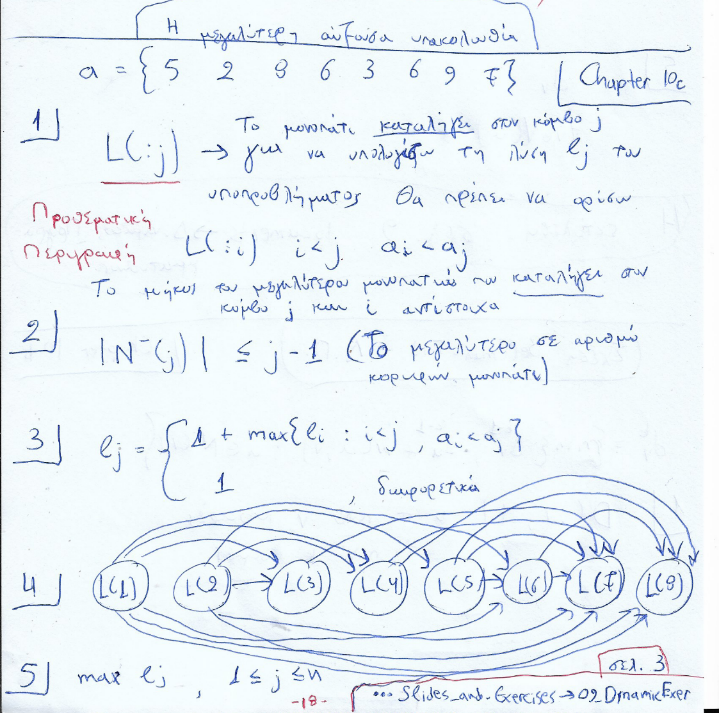 Η μεγαλύτερη αύξουσα υπακολουθία
a = {5 2 8 6 3 6 9 7}
Chapter 10c
1] L(:j) → Το μονοπάτι καταλήγει στον κόμβο j
για να υπολογίσω τη λύση lj του
υποπροβλήματος θα πρέπει να ορίσω
Προθεματική
Περιγραφή
L(:i) i<j ai<aj
Το μήκος του μεγαλύτερου μονοπατιού που καταλήγει στον
κόμβο j και i αντίστοιχα
2] |N⁻(j)| ≤ j-1 (Το μεγαλύτερο σε αριθμό
κορυφών μονοπάτι)
3] lj = { 1 + max{li : i<j , ai<aj}
1 , διαφορετικά
4] L(1) L(2) L(3) L(4) L(5) L(6) L(7) L(8)
5] max lj , 1≤j≤n
σελ. 3
-18-
... Slides_and_Exercises → 02 DynamicExer